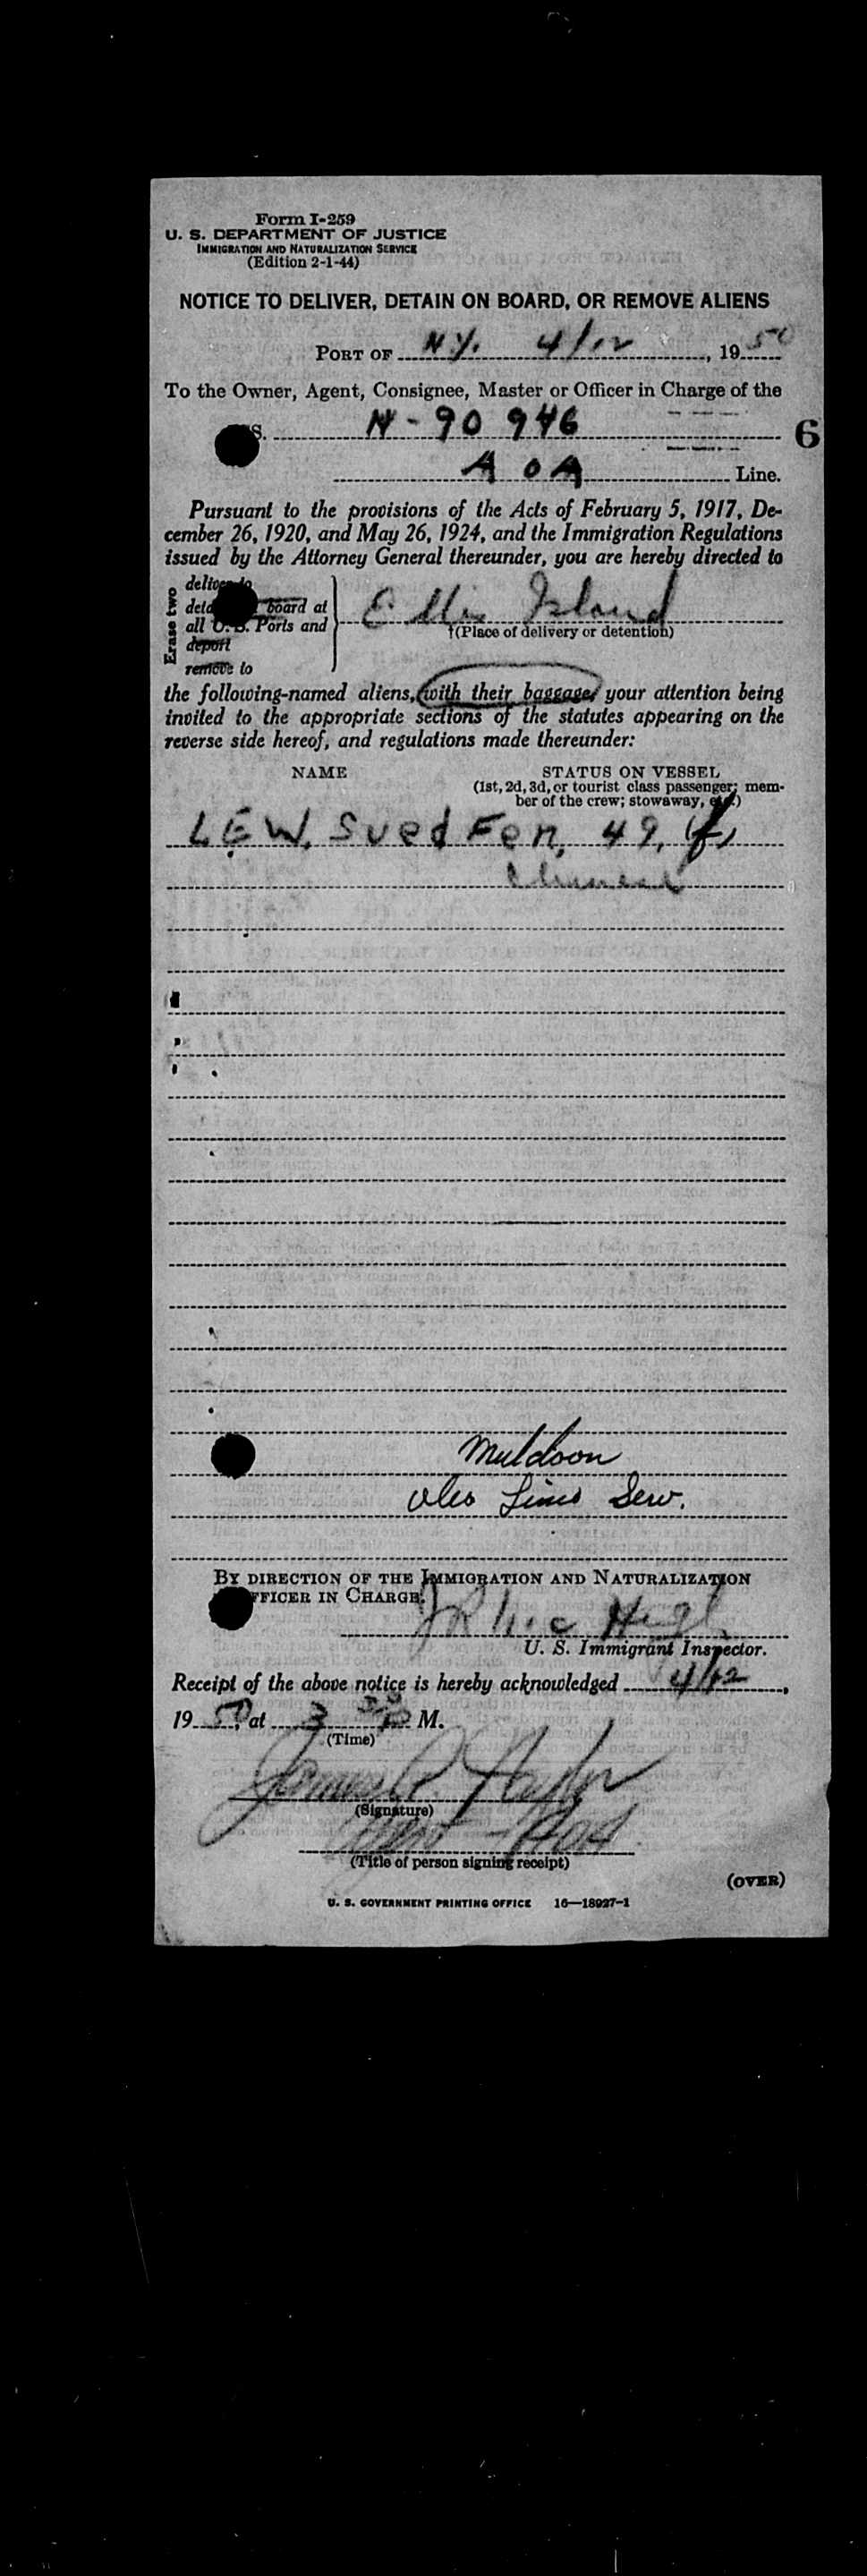 Form I-259
U. S. DEPARTMENT OF JUSTICE
IMMIGRATION AND NATURALIZATION SERVICE
(Edition 2-1-44)
NOTICE TO DELIVER, DETAIN ON BOARD, OR REMOVE ALIENS
PORT OF N.Y. 4/12, 1950
To the Owner, Agent, Consignee, Master or Officer in Charge of the
S. N-90946
6
A O A Line.
Pursuant to the provisions of the Acts of February 5, 1917, De-
cember 26, 1920, and May 26, 1924, and the Immigration Regulations
issued by the Attorney General thereunder, you are hereby directed to
Erase two
deliver to
board at
all U. S. Ports and
deport
remove to
Ellis Island
(Place of delivery or detention)
the following-named aliens, with their baggage, your attention being
invited to the appropriate sections of the statutes appearing on the
reverse side hereof, and regulations made thereunder:
NAME STATUS ON VESSEL
(1st, 2d, 3d, or tourist class passenger; mem-
ber of the crew; stowaway, etc.)
LEW, Sued Fen, 49, (f)
Chinese
Muldoon
Serv.
BY DIRECTION OF THE IMMIGRATION AND NATURALIZATION
OFFICER IN CHARGE.
U. S. Immigrant Inspector.
Receipt of the above notice is hereby acknowledged 4/12,
1950, at 3 30 P M.
(Time)
James
(Signature)
(Title of person signing receipt)
(OVER)
U. S. GOVERNMENT PRINTING OFFICE 16—18927-1